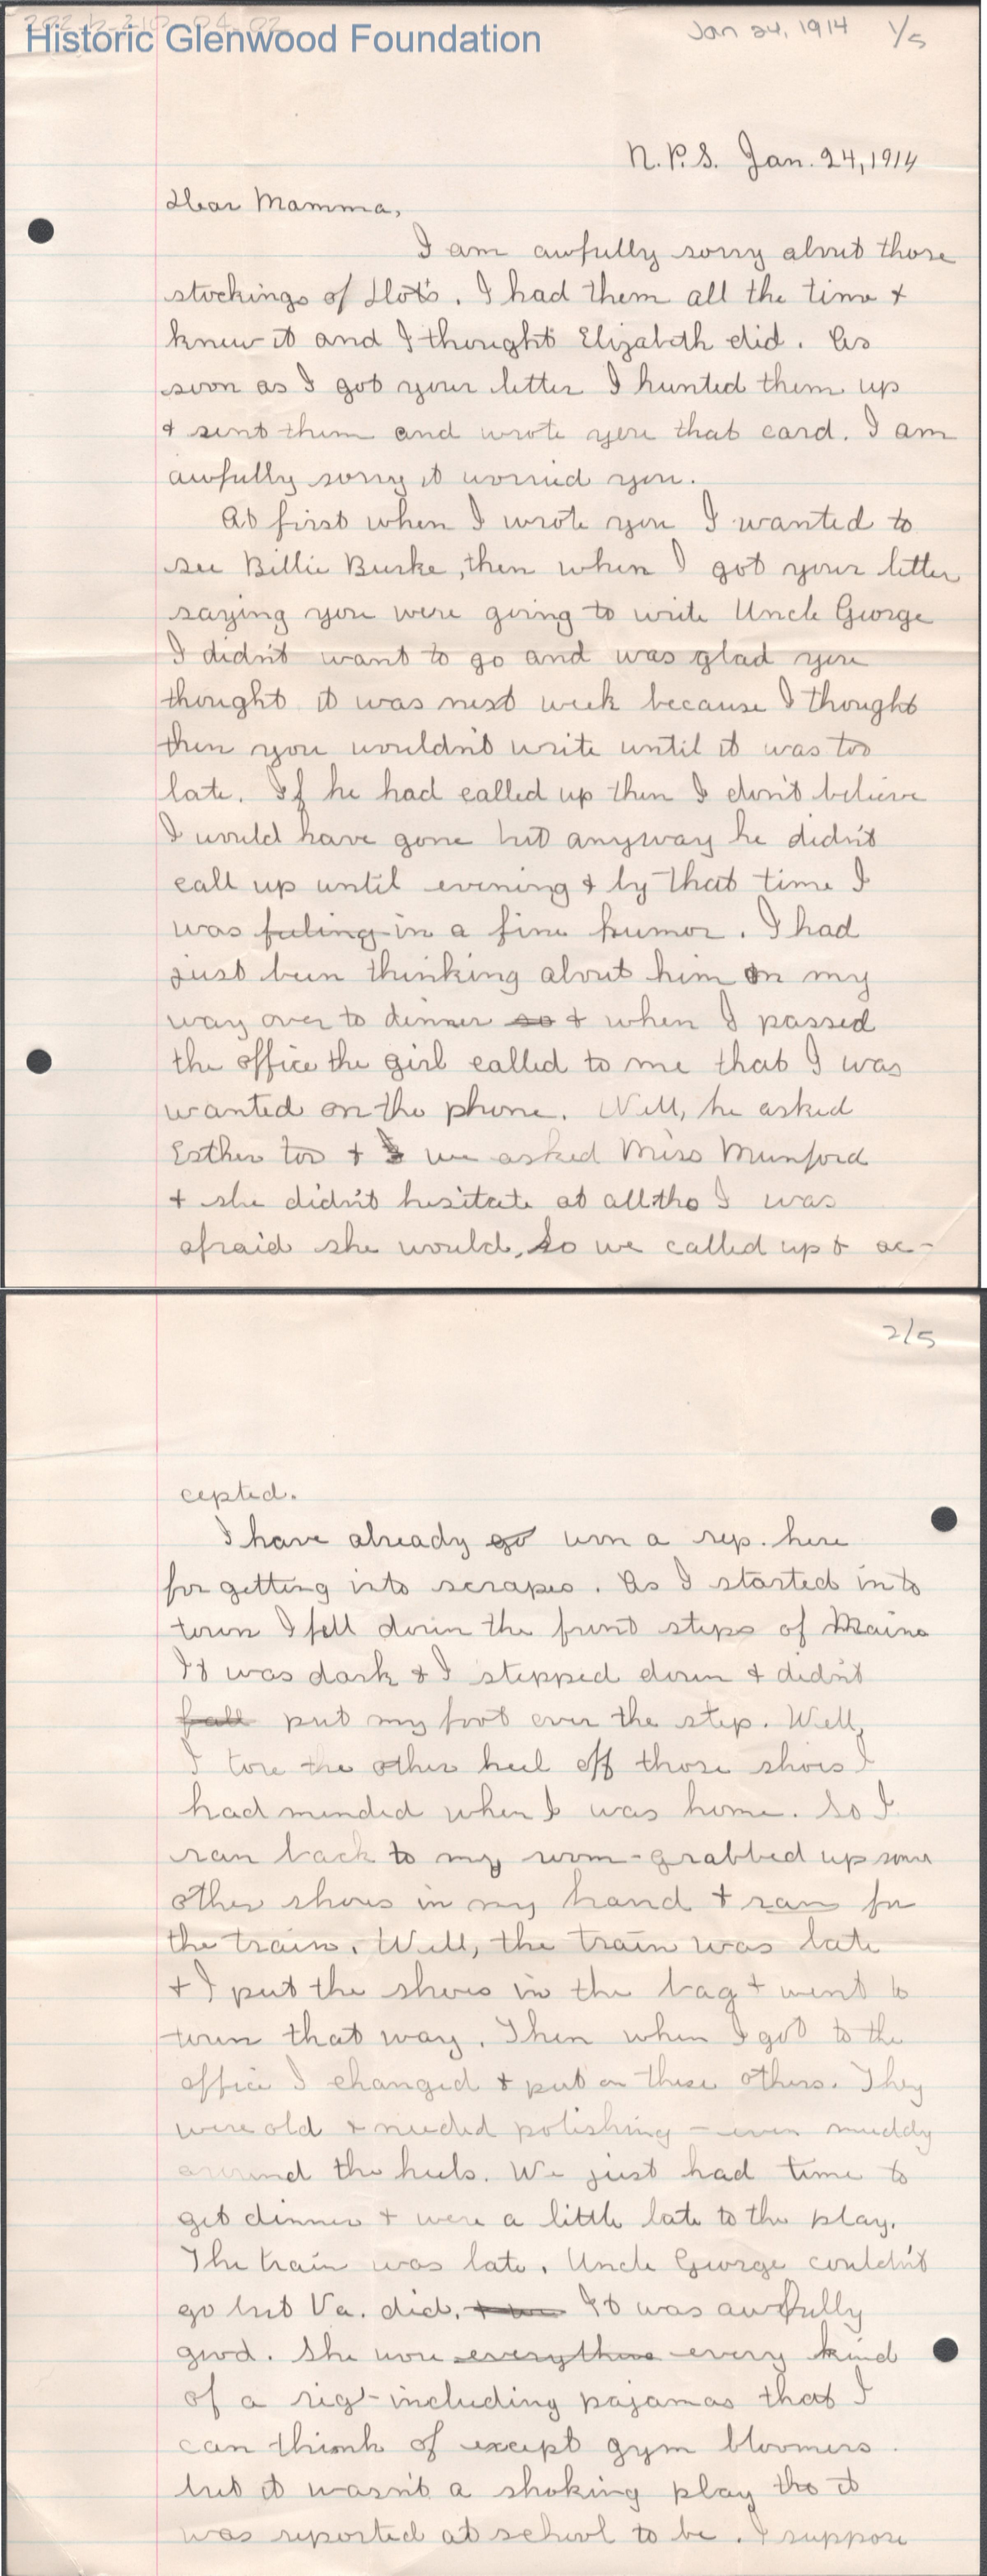 202-b-210-04-02
Historic Glenwood Foundation
Jan 24, 1914 1/5
N.P.S. Jan. 24, 1914
Dear Mamma,
I am awfully sorry about those
stockings of Dot's. I had them all the time +
knew it and I thought Elizabeth did. As
soon as I got your letter I hunted them up
+ sent them and wrote you that card. I am
awfully sorry it worried you.
At first when I wrote you I wanted to
see Billie Burke, then when I got your letter
saying you were going to write Uncle George
I didn't want to go and was glad you
thought it was next week because I thought
then you wouldn't write until it was too
late. If he had called up then I don't believe
I would have gone but anyway he didn't
call up until evening + by that time I
was feeling in a fine humor. I had
just been thinking about him on my
way over to dinner so + when I passed
the office the girl called to me that I was
wanted on the phone. Well, he asked
Esther too + I we asked Miss Munford
+ she didn't hesitate at all tho I was
afraid she would, so we called up + ac-
2/5
cepted.
I have already go won a rep. here
for getting into scrapes. As I started into
town I fell down the front steps of Main
It was dark + I stepped down + didn't
fall put my foot over the step. Well,
I tore the other heel off those shoes I
had mended when I was home. So I
ran back to my room - grabbed up some
other shoes in my hand + ran for
the train. Well, the train was late
+ I put the shoes in the bag + went to
town that way. Then when I got to the
office I changed + put on these others. They
were old + needed polishing - even muddy
around the heels. We just had time to
get dinner + were a little late to the play.
The train was late. Uncle George couldn't
go but Va. did. It was awfully
good. She wore everything every kind
of a rig - including pajamas that I
can think of except gym bloomers.
but it wasn't a shoking play tho it
was reported at school to be. I suppose